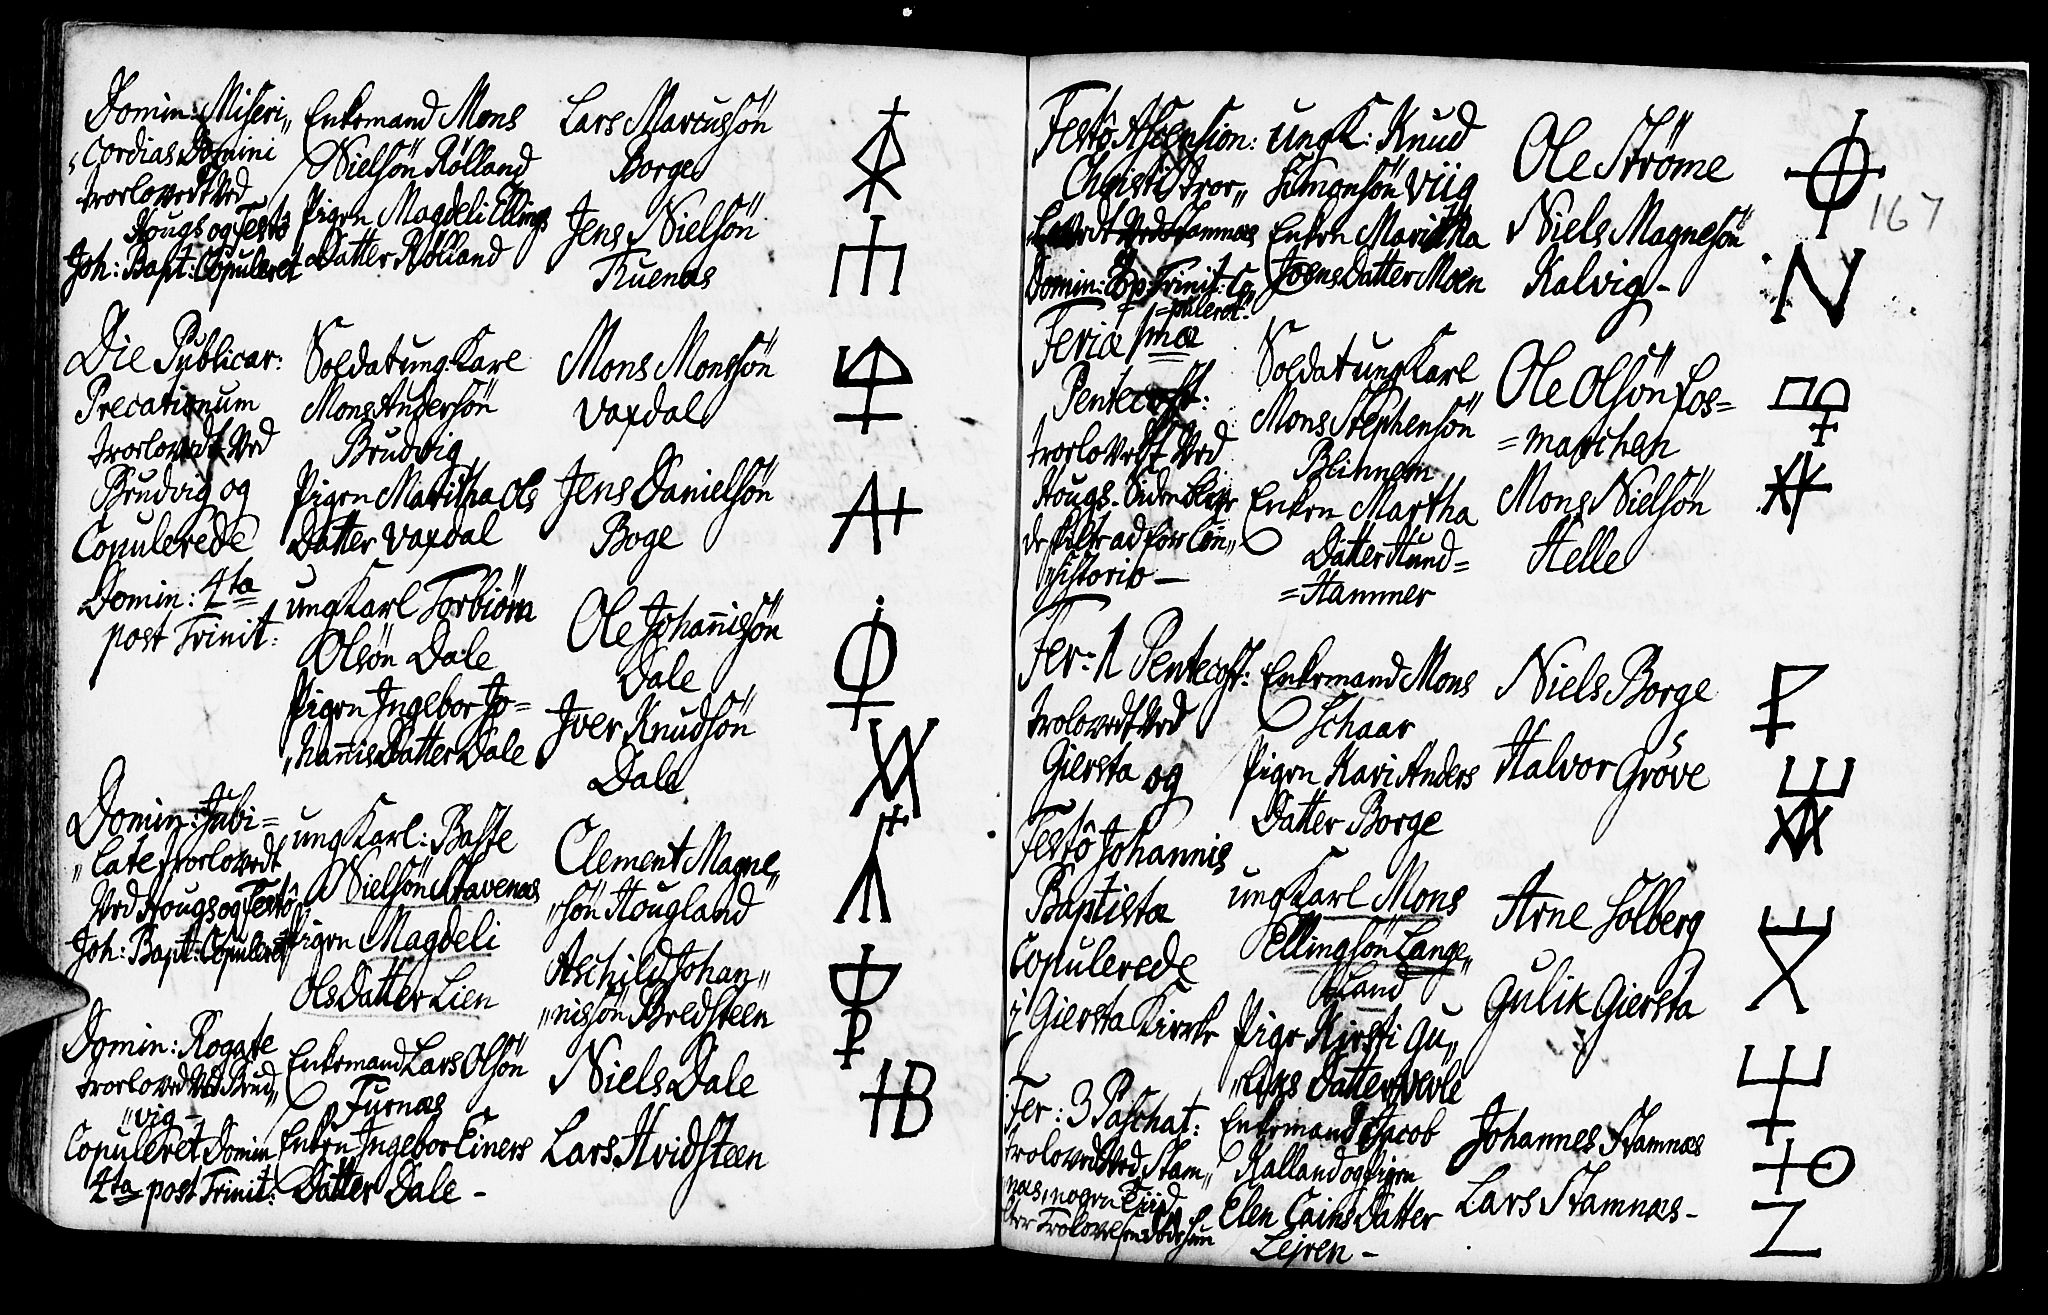 Domin: Miseri„
„Cordias Domini
trorlovedt Ved
Hougs og Festô
Joh: Bapt: Copuleret
Enkemand Mons
Nielsön Rölland
Pigen Magdeli Ellings
Datter Rölland
Lars Marcussön
Borge
Jens Nielsön
Truenæs
Die Publicar:
Precationum
trorlovedt Ved
Brudvig og
Copulerede
Soldat ung Karl
Mons Andersön
Brudvig
Pigen Maritha Ols
Datter Vaxdal
Mons Monssön
Vaxdal
Jens Danielsön
Boge
Domin: 4ta
post Trinit:
ung Karl Torbiörn
Olsön Dale
Pigen Ingebor Jo=
„hannis Datter Dale
Ole Johannissön
Dale
Iver Knudsön
Dale
Domin: Jubi=
„late trorlovedt
Ved Hougs og Festô
Joh: Bapt: Copuleret
ung Karl: Baste
Nielsön Stavenæs
Pigen Magdeli
Ols Datter Lien
Clement Magne„
„sön Hougland
Aschild Johan„
„nissön Bredsteen
Domin: Rogate
trorloved Ved Brud„
„vig –
Copuleret Domin
4ta post Trinit:
Enkemand Lars Olsön
Furnæs
Enken Ingebor Einers
Datter Dale –
Niels Dale
Lars Hvidsteen
HB
167
Festô Ascension:
Christi tror„
„lovedt Ved Stamnæs
Domin: Trinit: Co
=puleret
ung K: Knud
Simonsön Viig
Enken Maritha
Joens Datter Moen
Ole Ströme
Niels Magnesön
Kalvig –
N
Feria 1ma
Pentecost:
trorlovedt Ved
Hougs. Siden
ad
„sistorio –
Soldat ung Karl
Mons Stephensön
Blinnem
Enken Martha
Datter Hund=
=Hammer
Ole Olsön Fos=
=marchen
Mons Nielsön
Helle
Fer: 1 Pentecost:
trolovedt Ved
Giersta og
Festô Johannis
Baptista
Copulerede
i Giersta Kirke
Enkemand Mons
Schaar
Pigen Kari Anders
Datter Borge
Niels Borge
Halvor Gröve
ung Karl Mons
Ellingsön Lange„
„Land
Pige Kirsti Gu„
„liks Datter Verle
Arne Solberg
Gulik Giersta
Fer: 3 Paschat:
trolovedt Ved Stam„
næs, nogen Tiid
Enkemand Jacob
Kalland og Pigen
Elen Cains Datter
Lejren –
Johannes Stamnæs
Lars Stamnæs –
Z